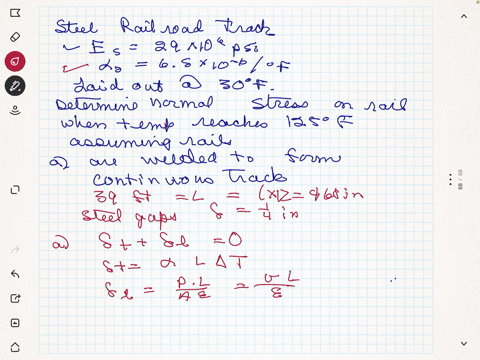 Steel Railroad Track
✓ E s = 29 × 10⁶ psi
✓ αs = 6.5 × 10⁻⁶ / °F
Laid out @ 30°F.
Determine normal stress on rail
when temp reaches 125° F
assuming rails
a) are welded to form
continuous Track
39 ft = L = (×12 = 468 in
Steel gaps δ = 1/4 in
a) δt + δL = 0
δt = α L ΔT
δL = P.L/AE = σ L/E